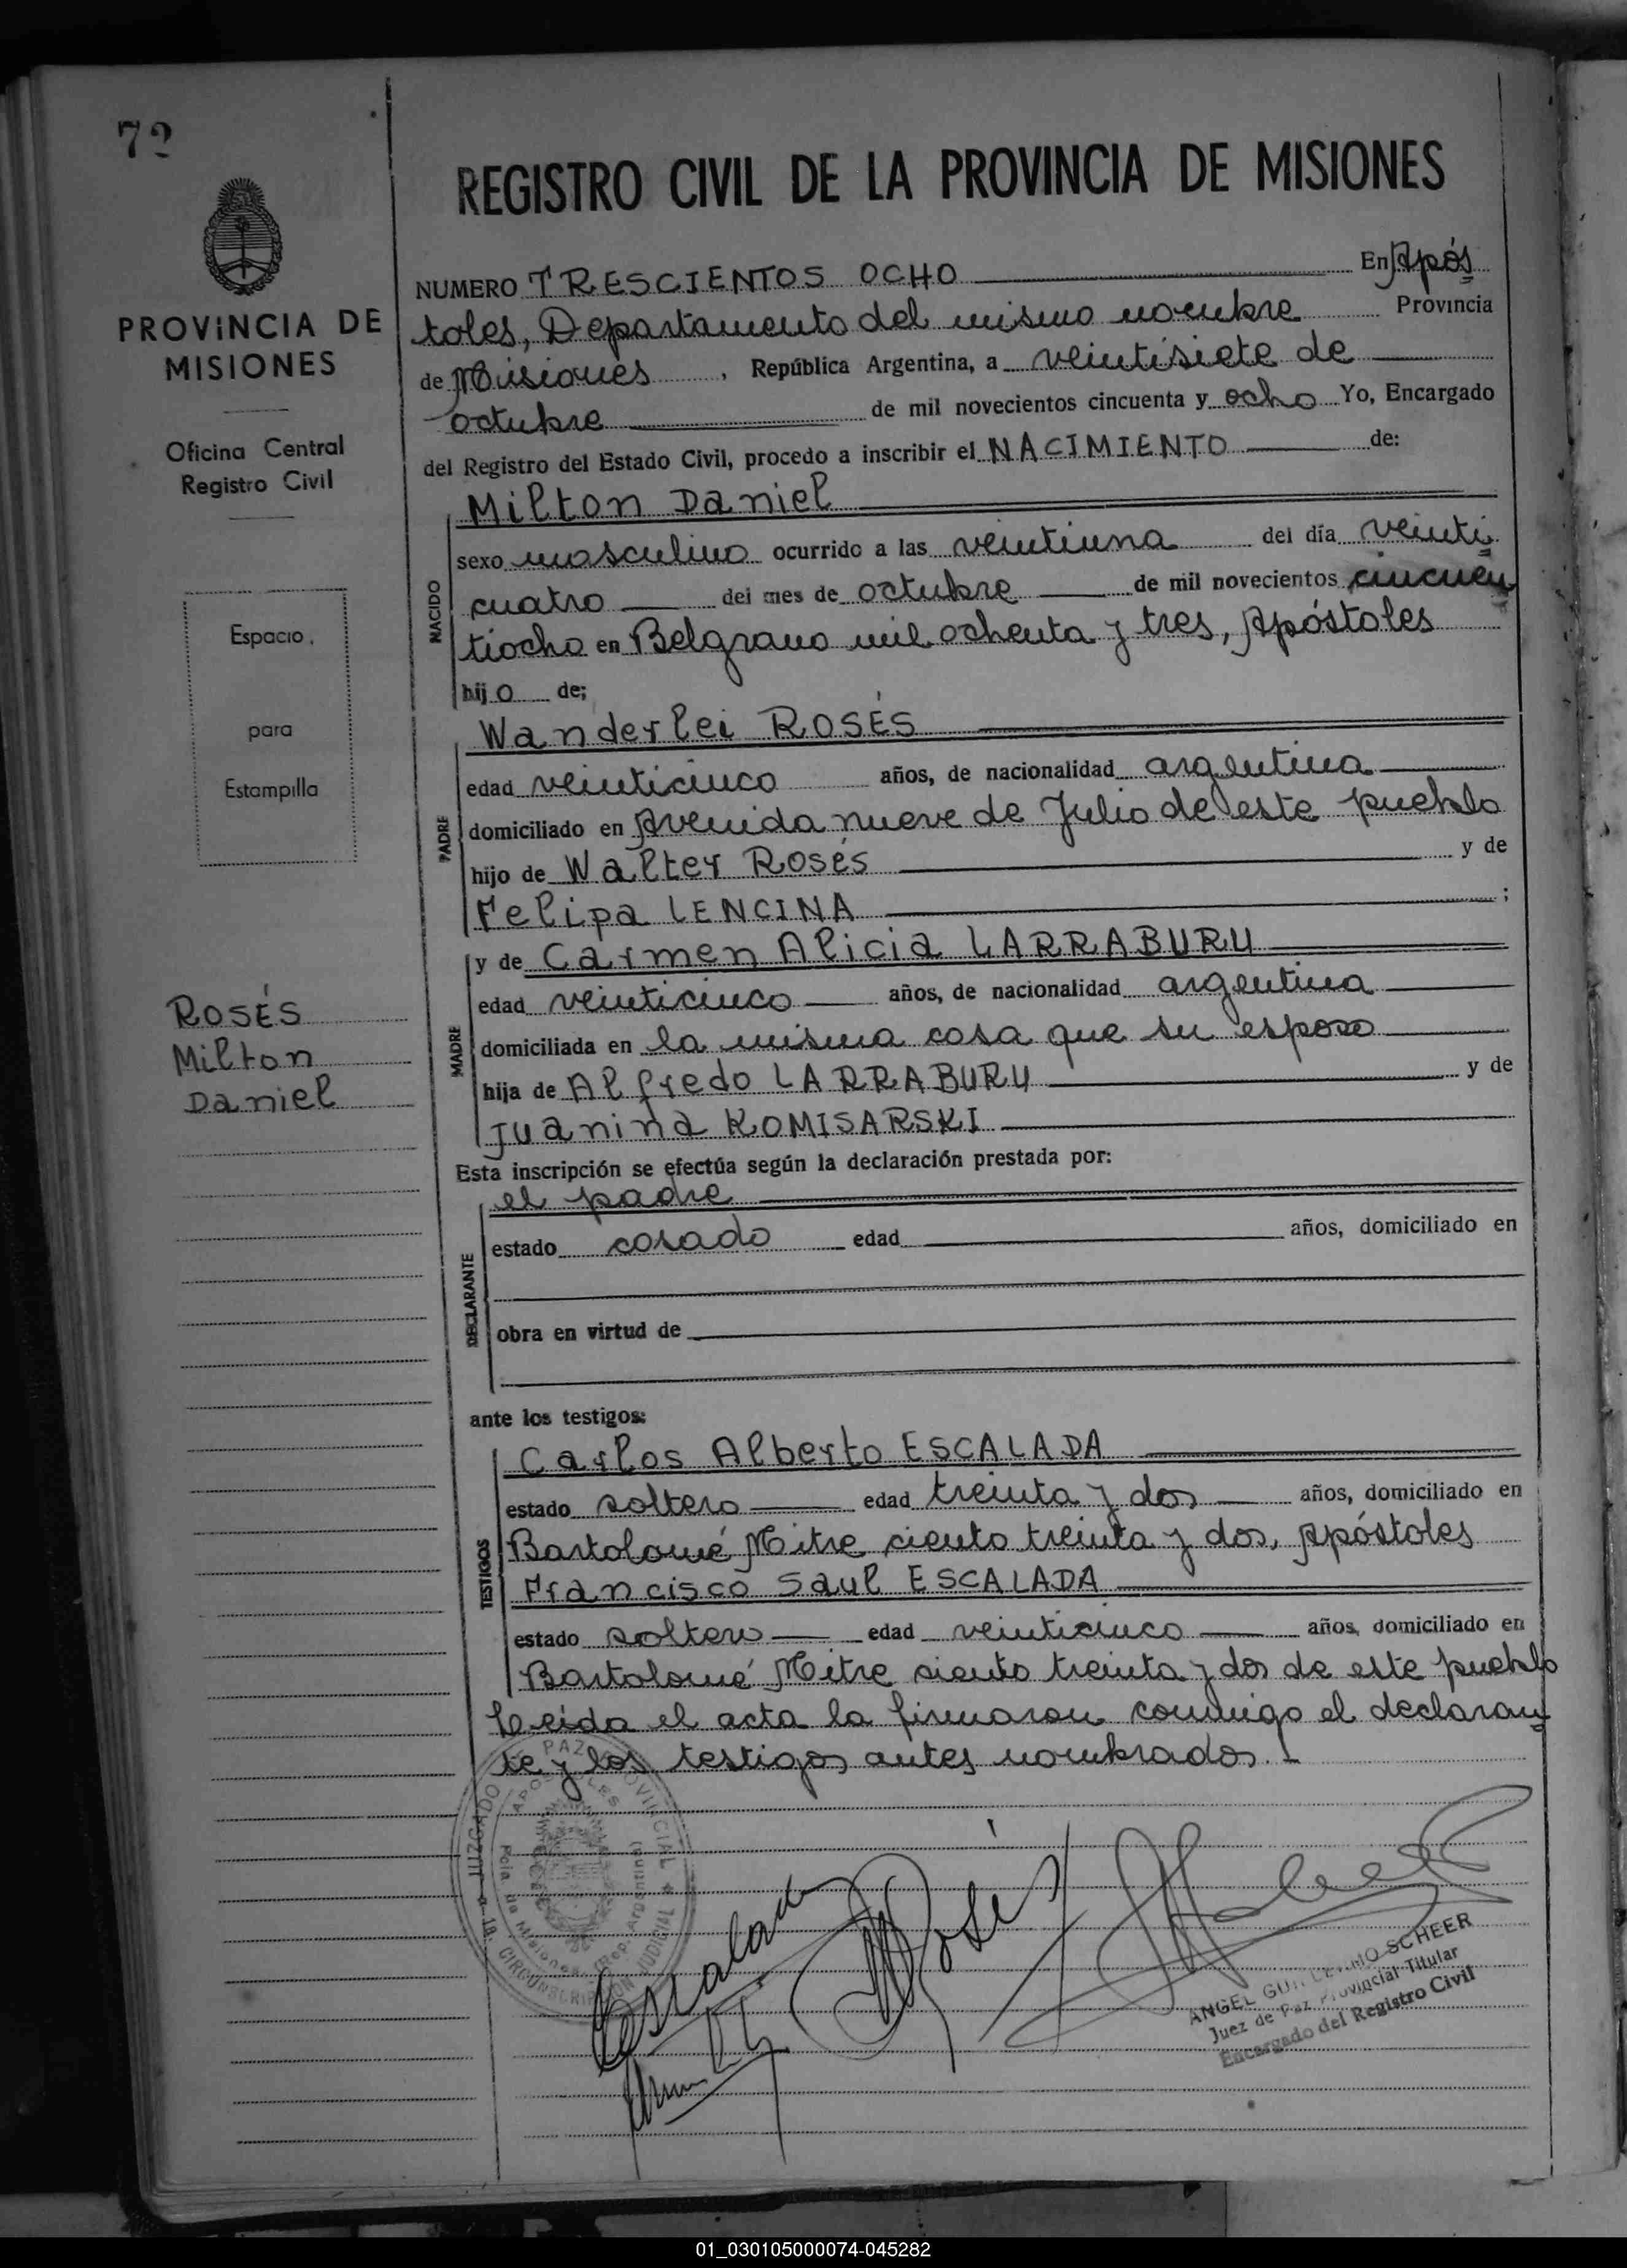 72
PROVINCIA DE
MISIONES
Oficina Central
Registro Civil
Espacio
para
Estampilla
ROSÉS
Milton
Daniel
REGISTRO CIVIL DE LA PROVINCIA DE MISIONES
NUMERO TRESCIENTOS OCHO En Após
toles, Departamento del mismo nombre Provincia
de Misiones, República Argentina, a veintisiete de
octubre de mil novecientos cincuenta y ocho Yo, Encargado
del Registro del Estado Civil, procedo a inscribir el NACIMIENTO de:
Milton Daniel
NACIDO
sexo masculino ocurrido a las veintiuna del día veinti
cuatro del mes de octubre de mil novecientos cincuen
tiocho en Belgrano mil ochenta y tres, Apóstoles
hijo de;
Wanderlei ROSÉS
PADRE
edad veinticinco años, de nacionalidad argentina
domiciliado en Avenida nueve de Julio de este pueblo
hijo de Walter Rosés y de
Felipa LENCINA ;
y de Carmen Alicia LARRABURU
MADRE
edad veinticinco años, de nacionalidad argentina
domiciliada en la misma casa que su esposo
hija de Alfredo LARRABURU y de
Juanina KOMISARSKI
Esta inscripción se efectúa según la declaración prestada por:
el padre
DECLARANTE
estado casado edad años, domiciliado en
obra en virtud de
ante los testigos:
Carlos Alberto ESCALADA
TESTIGOS
estado soltero edad treinta y dos años, domiciliado en
Bartolomé Mitre ciento treinta y dos, Apóstoles
Francisco Saul ESCALADA
estado soltero edad veinticinco años, domiciliado en
Bartolomé Mitre ciento treinta y dos de este pueblo
Leida el acta la firmaron conmigo el declaran
te y los testigos antes nombrados.-
JUZGADO PAZ PROVINCIAL
APOSTOLES
CIRCUNSCRIPCION JUDICIAL
(Rep. Argentina)
Escalada
Rosés
ANGEL GUILLERMO SCHEER
Juez de Paz Provincial Titular
Encargado del Registro Civil
01_030105000074-045282